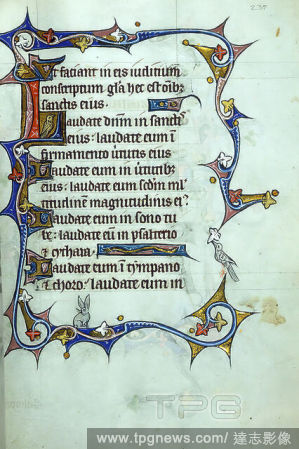 237
Ut faciant in eis iuditium
conscriptum gl'a hec est oib;
sanctis eius.
Laudate dnm in sanctis
eius: laudate eum ī
firmamento ūtutis eius
Laudate eum in ūtutib;
eius: laudate eum scdm ml
titudinem magnitudinis ei'
Laudate eum in sono tu
be: laudate eū in psalterio
et cythara.
Laudate eum ī tympano
et choro: laudate eum in
TPG
www.tpgnews.com/ 達志影像